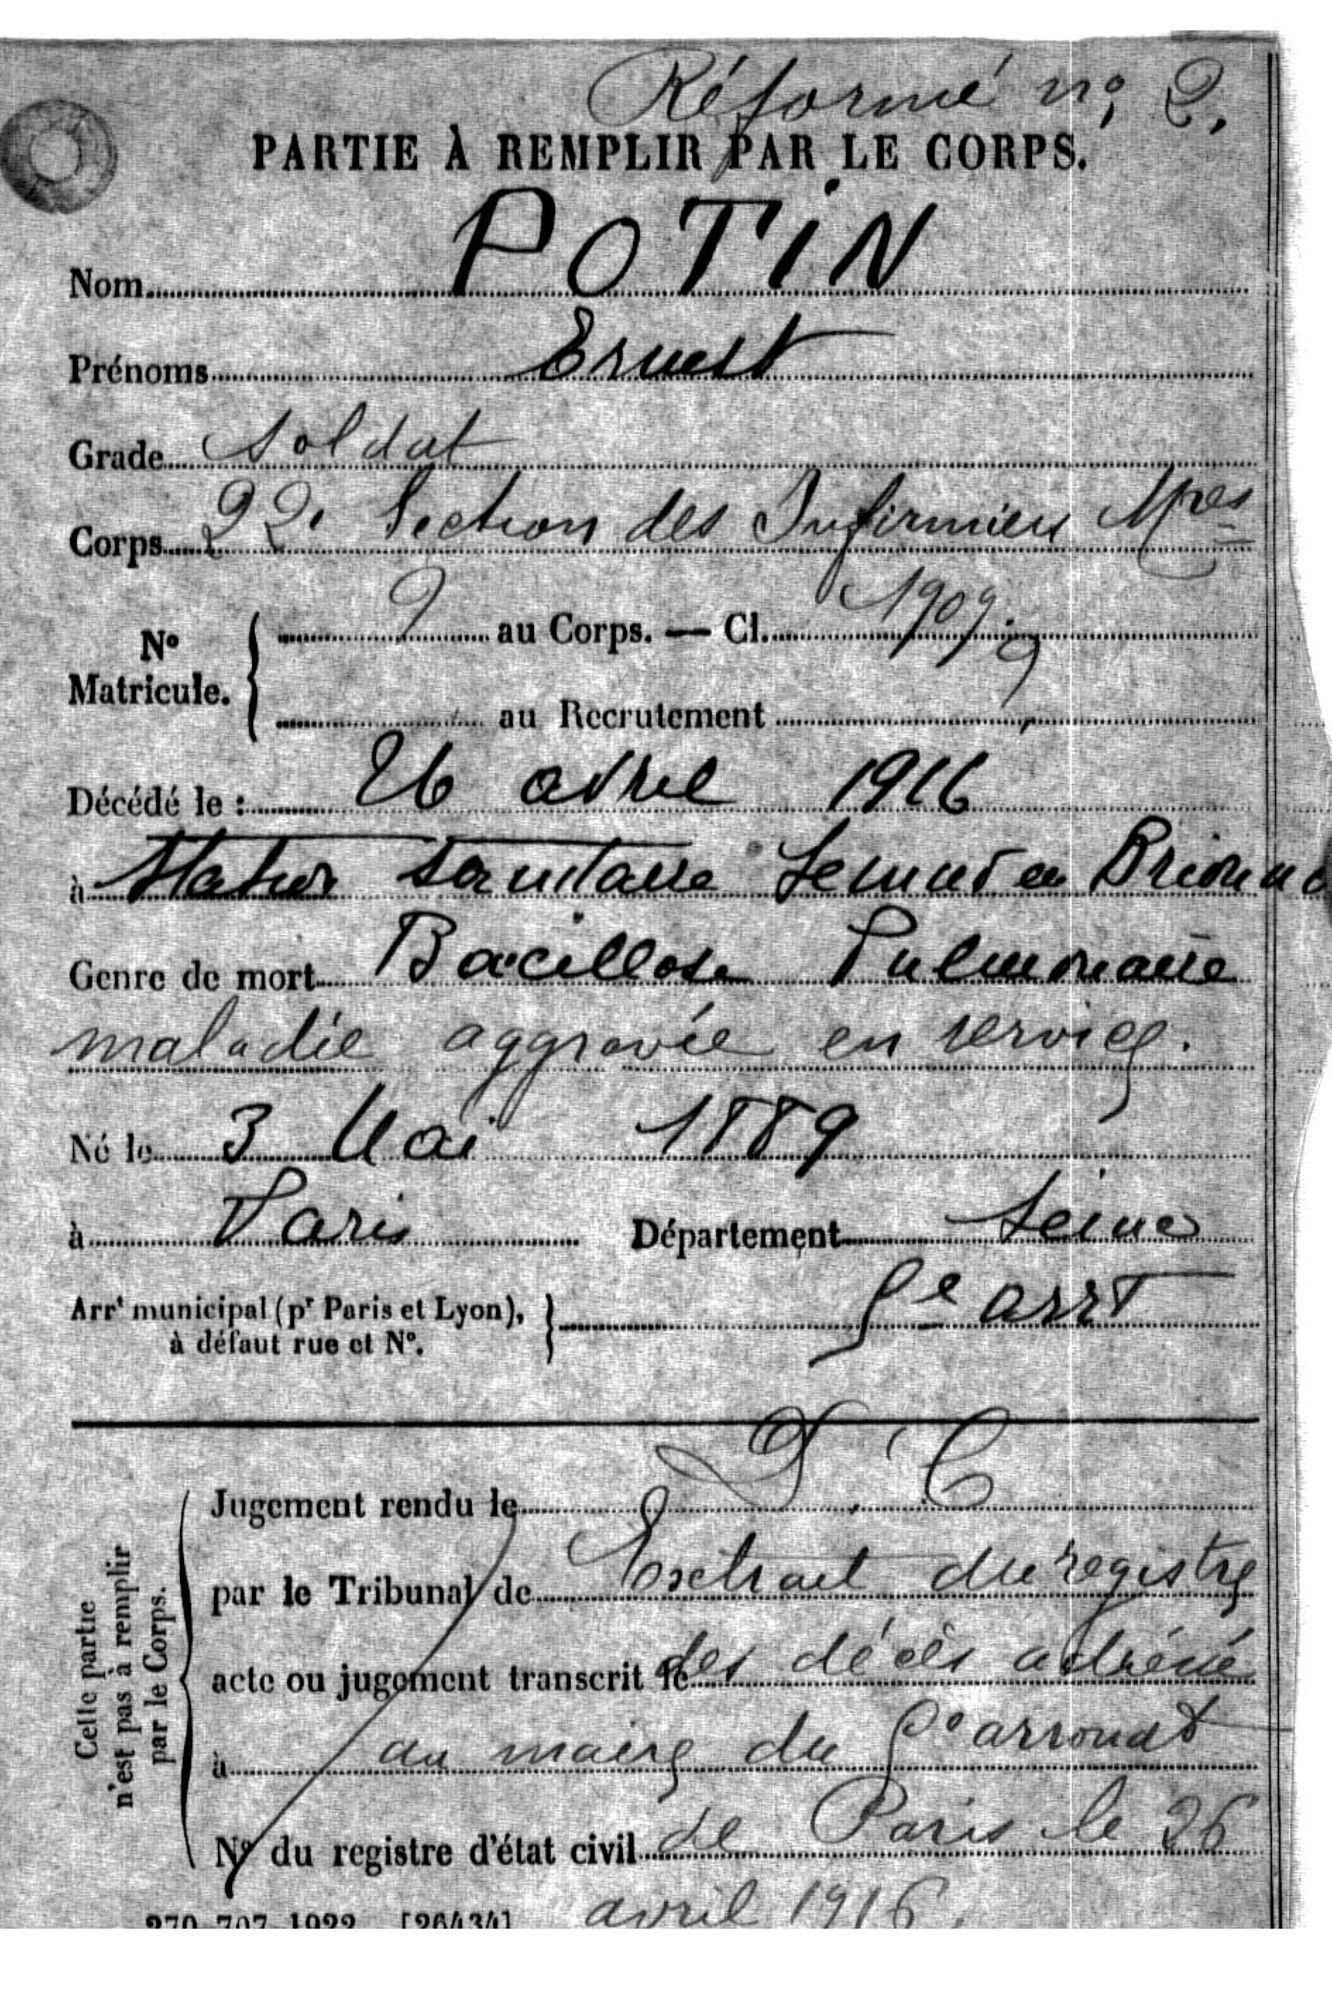 Réformé n° 2.
PARTIE À REMPLIR PAR LE CORPS.
Nom POTIN
Prénoms Ernest
Grade soldat
Corps 22e Section des Infirmiers Mres
N° Matricule. { ? au Corps. — Cl. 1909. ?
au Recrutement
Décédé le : 26 avril 1916
à Station sanitaire Semur en Brionnais
Genre de mort Bacillose Pulmonaire
maladie aggravée en service.
Né le 3 Mai 1889
à Paris Département Seine
Arrt municipal (pr Paris et Lyon), à défaut rue et N°. } 9e arrt
D. C
Celle partie n'est pas à remplir par le Corps.
Jugement rendu le
par le Tribunal de Extrait du registre
acte ou jugement transcrit le des décès adressé
à au maire du 9e arrondt
N° du registre d'état civil de Paris le 26
270-707-1922. [26434] avril 1916.